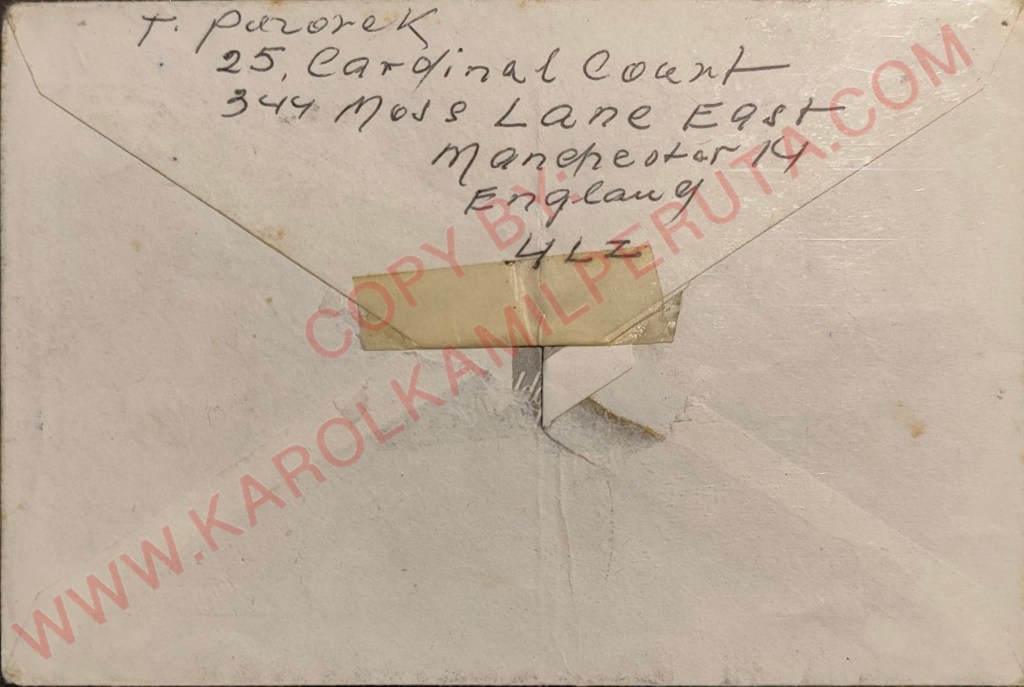 T. Pazorek
25, Cardinal Court
344 Moss Lane East
Manchester 14
England
4LZ
COPY BY:
WWW.KAROLKAMILPERUTA.COM